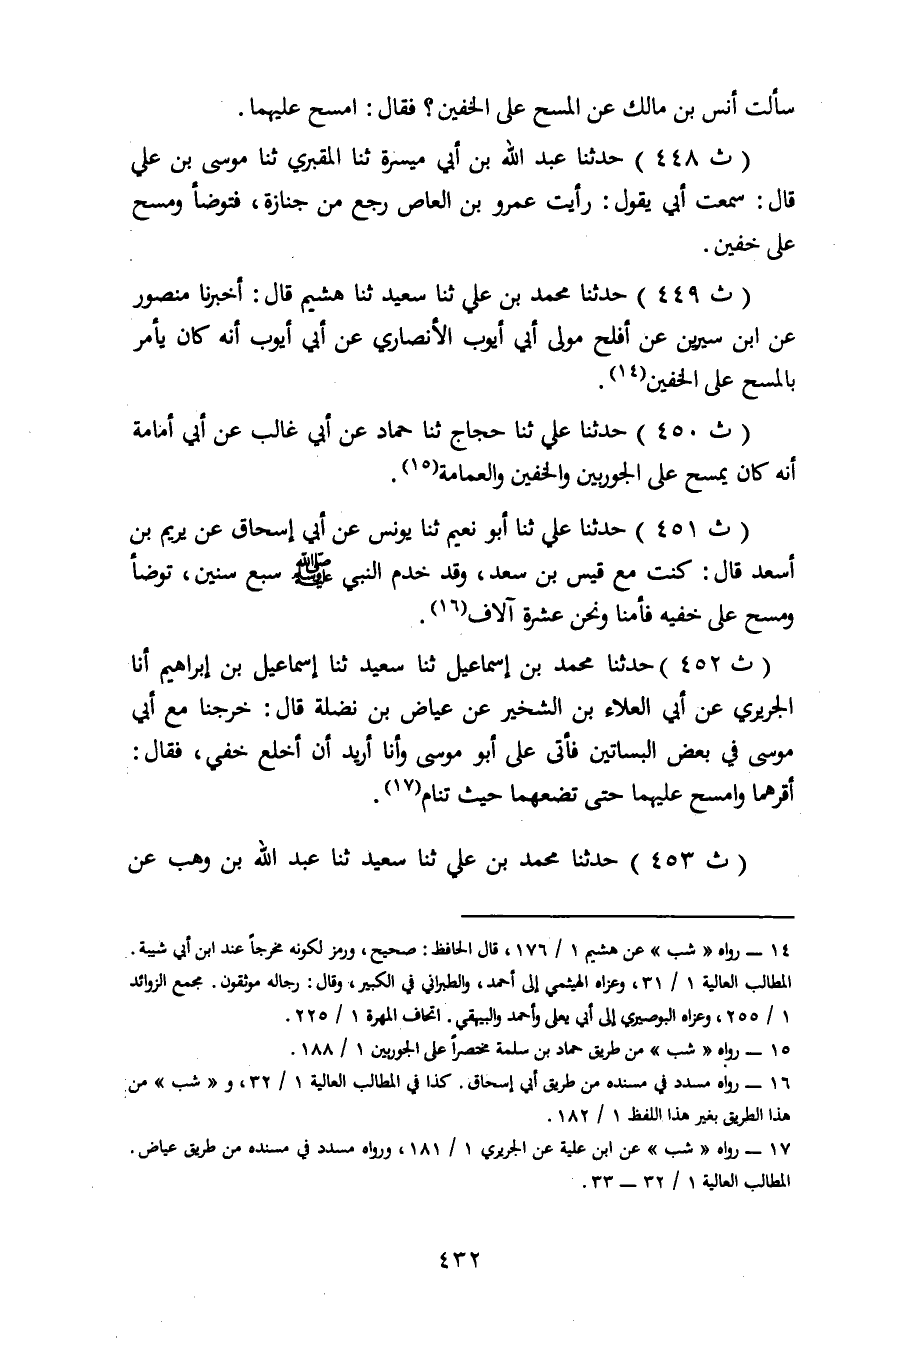 سألت أنس بن مالك عن المسح على الخفين؟ فقال: امسح عليهما.
( ث ٤٤٨ ) حدثنا عبد الله بن أبي ميسرة ثنا المقبري ثنا موسى بن علي
قال: سمعت أبي يقول: رأيت عمرو بن العاص رجع من جنازة، فتوضأ ومسح
على خفين.
( ث ٤٤٩ ) حدثنا محمد بن علي ثنا سعيد ثنا هشيم قال: أخبرنا منصور
عن ابن سيرين عن أفلح مولى أبي أيوب الأنصاري عن أبي أيوب أنه كان يأمر
بالمسح على الخفين(١٤).
( ث ٤٥٠ ) حدثنا علي ثنا حجاج ثنا حماد عن أبي غالب عن أبي أمامة
أنه كان يمسح على الجوربين والخفين والعمامة(١٥).
( ث ٤٥١ ) حدثنا علي ثنا أبو نعيم ثنا يونس عن أبي إسحاق عن يريم بن
أسعد قال: كنت مع قيس بن سعد، وقد خدم النبي ﷺ سبع سنين، توضأ
ومسح على خفيه فأمنا ونحن عشرة آلاف(١٦).
( ث ٤٥٢ ) حدثنا محمد بن إسماعيل ثنا سعيد ثنا إسماعيل بن إبراهيم أنا
الجريري عن أبي العلاء بن الشخير عن عياض بن نضلة قال: خرجنا مع أبي
موسى في بعض البساتين فأتى على أبو موسى وأنا أريد أن أخلع خفي، فقال:
أقرهما وامسح عليهما حتى تضعهما حيث تنام(١٧).
( ث ٤٥٣ ) حدثنا محمد بن علي ثنا سعيد ثنا عبد الله بن وهب عن
١٤ ــ رواه « شب » عن هشيم ١ / ١٧٦، قال الحافظ: صحيح، ورمز لكونه مخرجاً عند ابن أبي شيبة.
المطالب العالية ١ / ٣١، وعزاه الهيثمي إلى أحمد، والطبراني في الكبير، وقال: رجاله موثقون. مجمع الزوائد
١ / ٢٥٥، وعزاه البوصيري إلى أبي يعلى وأحمد والبيهقي. اتحاف المهرة ١ / ٢٢٥.
١٥ ــ رواه « شب » من طريق حماد بن سلمة مختصراً على الجوربين ١ / ١٨٨.
١٦ ــ رواه مسدد في مسنده من طريق أبي إسحاق. كذا في المطالب العالية ١ / ٣٢، و « شب » من
هذا الطريق بغير هذا اللفظ ١ / ١٨٢.
١٧ ــ رواه « شب » عن ابن علية عن الجريري ١ / ١٨١، ورواه مسدد في مسنده من طريق عياض.
المطالب العالية ١ / ٣٢ ــ ٣٣.
٤٣٢